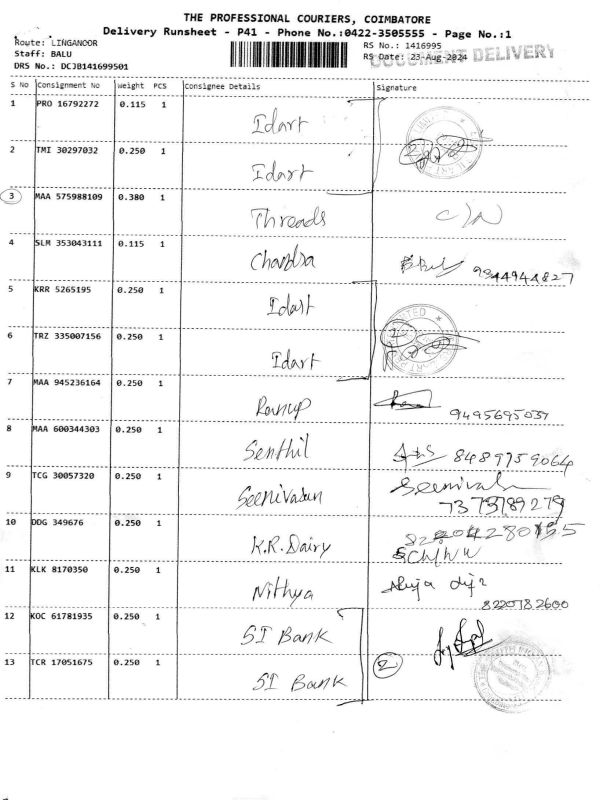 THE PROFESSIONAL COURIERS, COIMBATORE
Delivery Runsheet - P41 - Phone No.:0422-3505555 - Page No.:1
Route: LINGANOOR
RS No.: 1416995
Staff: BALU
RS Date: 23-Aug-2024
DOCUMENT DELIVERY
DRS No.: DCJB141699501
S No Consignment No Weight PCS Consignee Details Signature
1 PRO 16792272 0.115 1 Idart
2 TMI 30297032 0.250 1 Idart 2
3 MAA 575988109 0.380 1 Threads
4 SLM 353043111 0.115 1 Chandra 9344944827
5 KRR 5265195 0.250 1 Idart
6 TRZ 335007156 0.250 1 Idart 2
7 MAA 945236164 0.250 1 9495695037
8 MAA 600344303 0.250 1 Senthil 8489759064
9 TCG 30057320 0.250 1 Seenivasan
7373789279
10 DDG 349676 0.250 1 K.R. Dairy
11 KLK 8170350 0.250 1 Nithya
8220782600
12 KOC 61781935 0.250 1 SI Bank
13 TCR 17051675 0.250 1 SI Bank 2